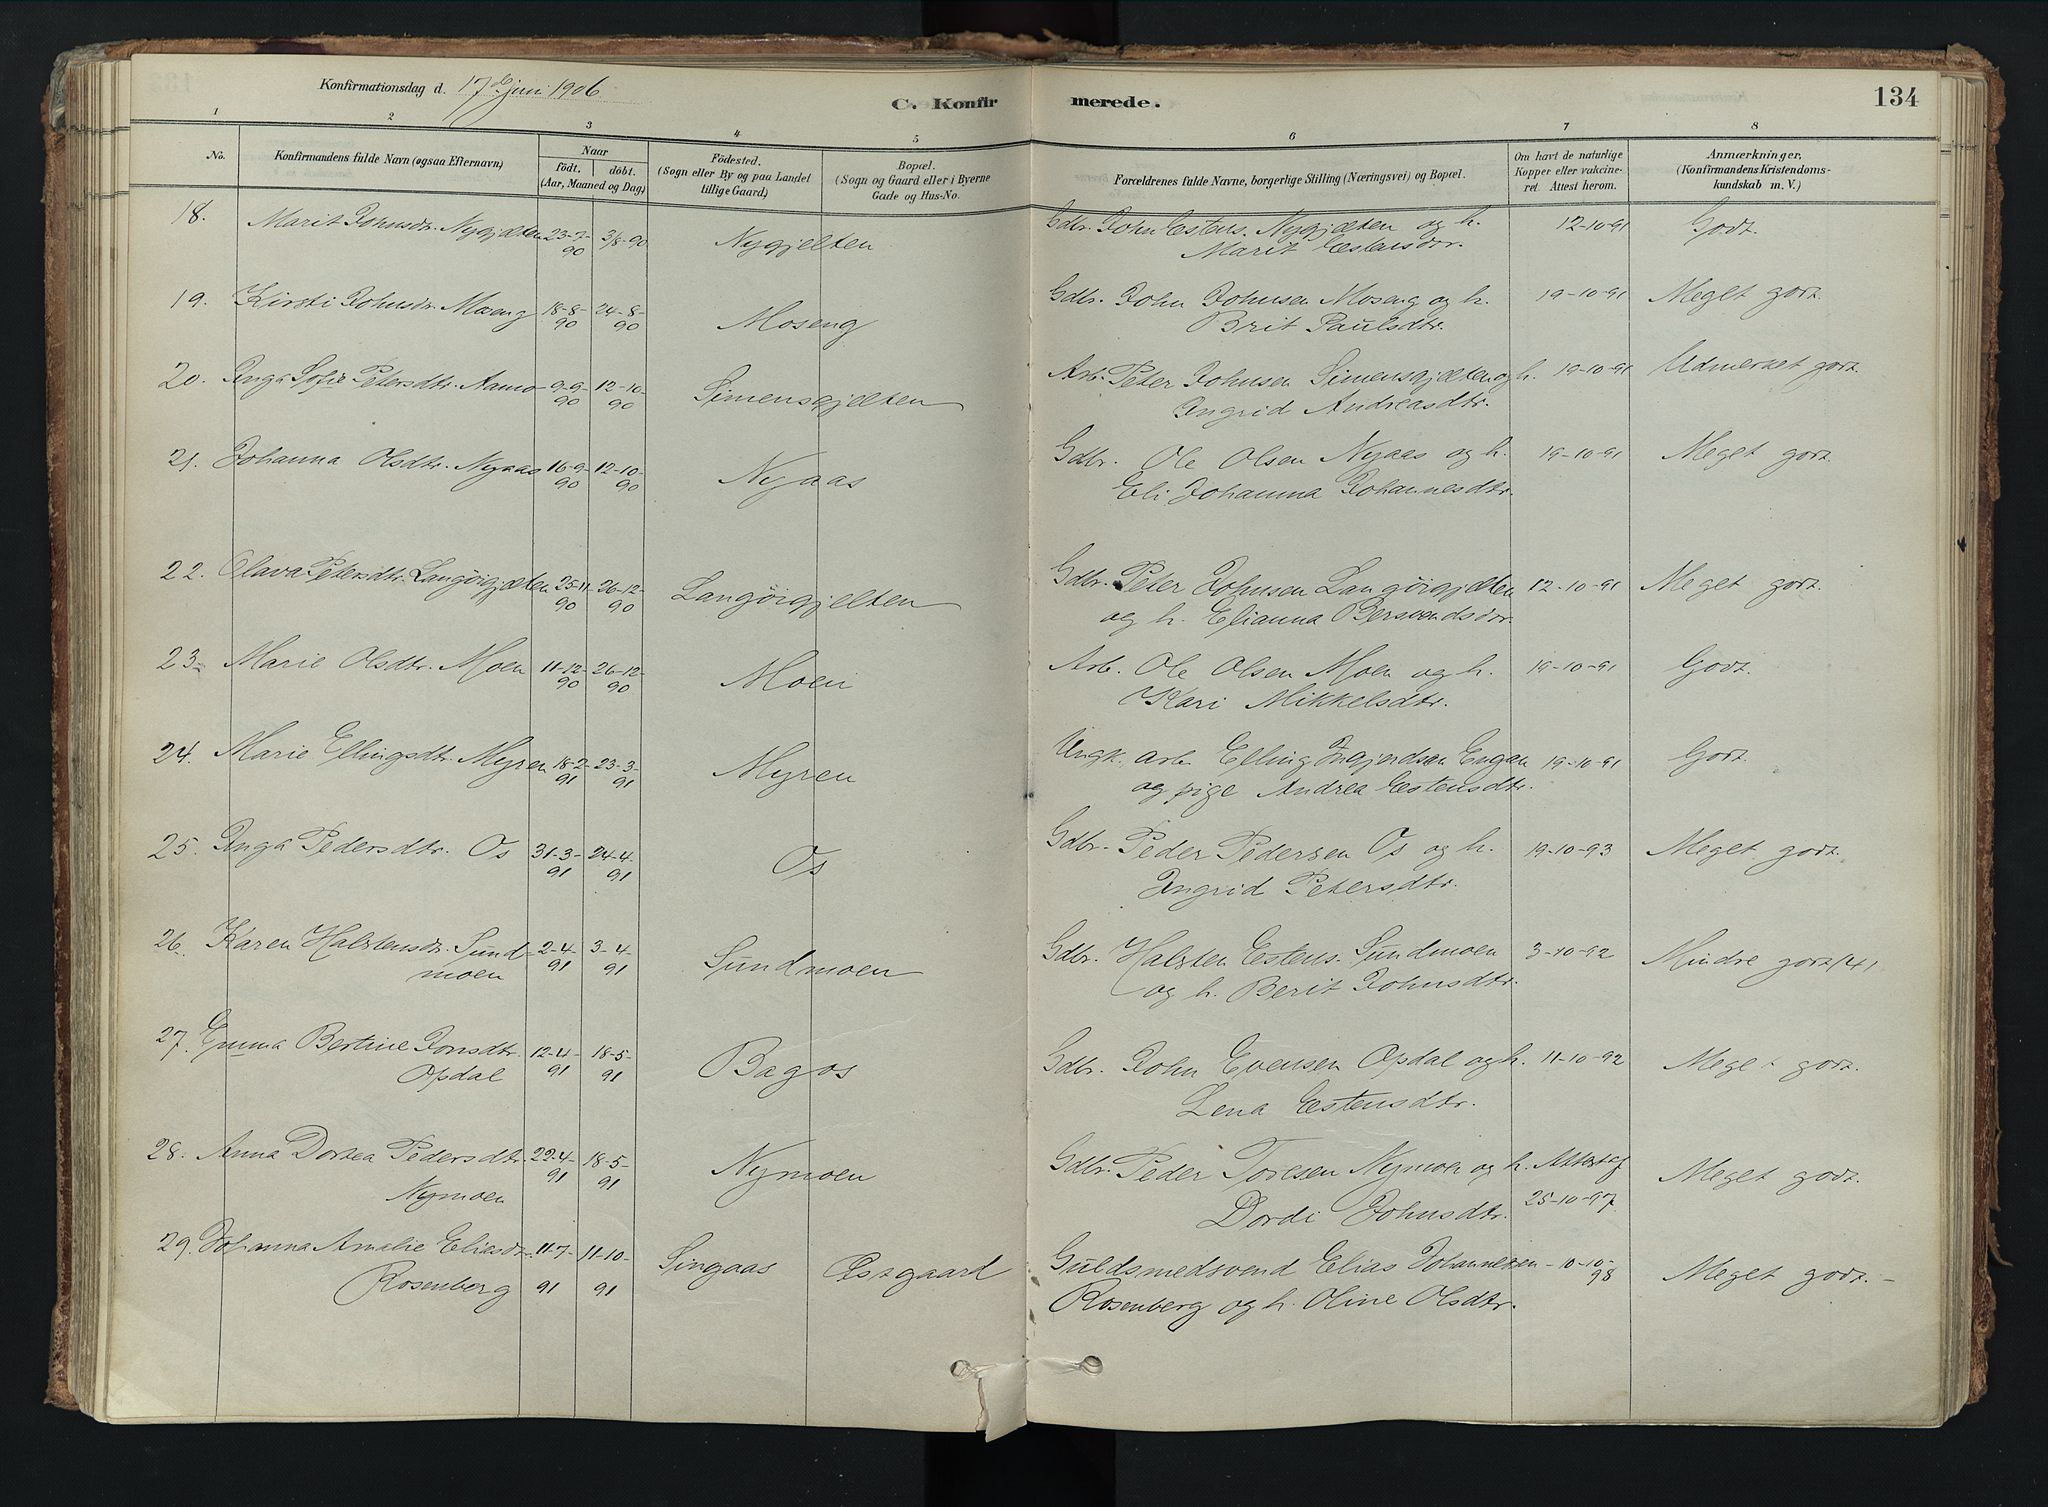 Konfirmationsdag d. 17de Juni 1906
C. Konfirmerede.
134
1 2 3 4 5 6 7 8
No.
Konfirmandens fulde Navn (ogsaa Efternavn)
Naar
født. døbt.
(Aar, Maaned og Dag)
Födested.
(Sogn eller By og paa Landet
tillige Gaard)
Bopæl.
(Sogn og Gaard eller i Byerne
Gade og Hus-No.
Forældrenes fulde Navne, borgerlige Stilling (Næringsvei) og Bopæl.
Om havt de naturlige
Kopper eller vakcine-
ret. Attest herom.
Anmærkninger.
(Konfirmandens Kristendoms-
kundskab m. V.)
18. Marit Johnsdr. Nygjelten 23-7-90 3/8-90 Nygjelten Gdbr. John Estens. Nygjælten og h. 12-10-91 Godt.
Marit Estensdr.
19. Kirsti Johnsdr. Moseng 18-8-90 24-8-90 Moseng Gdbr. John Johnsen Moseng og h. 19-10-91 Meget godt.
Brit Paulsdtr.
20. Inga Sofie Petersdtr. Aamo 9-9-90 12-10-90 Simensgjelten Arb. Peter Johnsen Simensgjælten og h. 19-10-91 Udmerket godt.
Ingrid Andreasdtr.
21. Johanna Olsdtr. Nyaas 16-9-90 12-10-90 Nyaas Gdbr. Ole Olsen Nyaas og h. 19-10-91 Meget godt.
Eli Johanna Johannesdtr.
22. Olava Petersdtr. Langøigjelten 25-11-90 26-12-90 Langøigjelten Gdbr. Peter Johnsen Langøigjælten 12-10-91 Meget godt.
og h. Elianna Bersvendsdr.
23. Marie Olsdtr. Moen 11-12-90 26-12-90 Moen Arb. Ole Olsen Moen og h. 19-10-91 Godt.
Kari Mikkelsdtr.
24. Marie Ellingsdtr. Myren 18-2-91 23-3-91 Myren Ungk. arb. Elling Engan 19-10-91 Godt.
og pige Andrea Estensdtr.
25. Inga Pedersdtr. Os 31-3-91 24-4-91 Os Gdbr. Peder Pedersen Os og h. 19-10-93 Meget godt.
Ingrid Petersdtr.
26. Karen Halstensdr. Sund- 2-4-91 3-4-91 Sundmoen Gdbr. Halsten Estens. Sundmoen 3-10-92 Mindre godt (4)
moen og h. Berit Johnsdtr.
27. Emma Bertine Jonsdtr. 12-4-91 18-5-91 Bagos Gdbr. John Evensen Opdal og h. 11-10-92 Meget godt.
Opdal Lena Estensdtr.
28. Anna Dortea Pedersdtr. 22-4-91 18-5-91 Nymoen Gdbr. Peder Toresen Nymoen og h. Attest af Meget godt.
Nymoen Dordi Johnsdtr. 25-10-97
29. Johanna Amalie Eliasdtr. 11-7-91 11-10-91 Singaas Østgaard Guldsmedsvend Elias Johannessen 10-10-98 Meget godt.
Rosenberg Rosenberg og h. Oline Olsdtr.